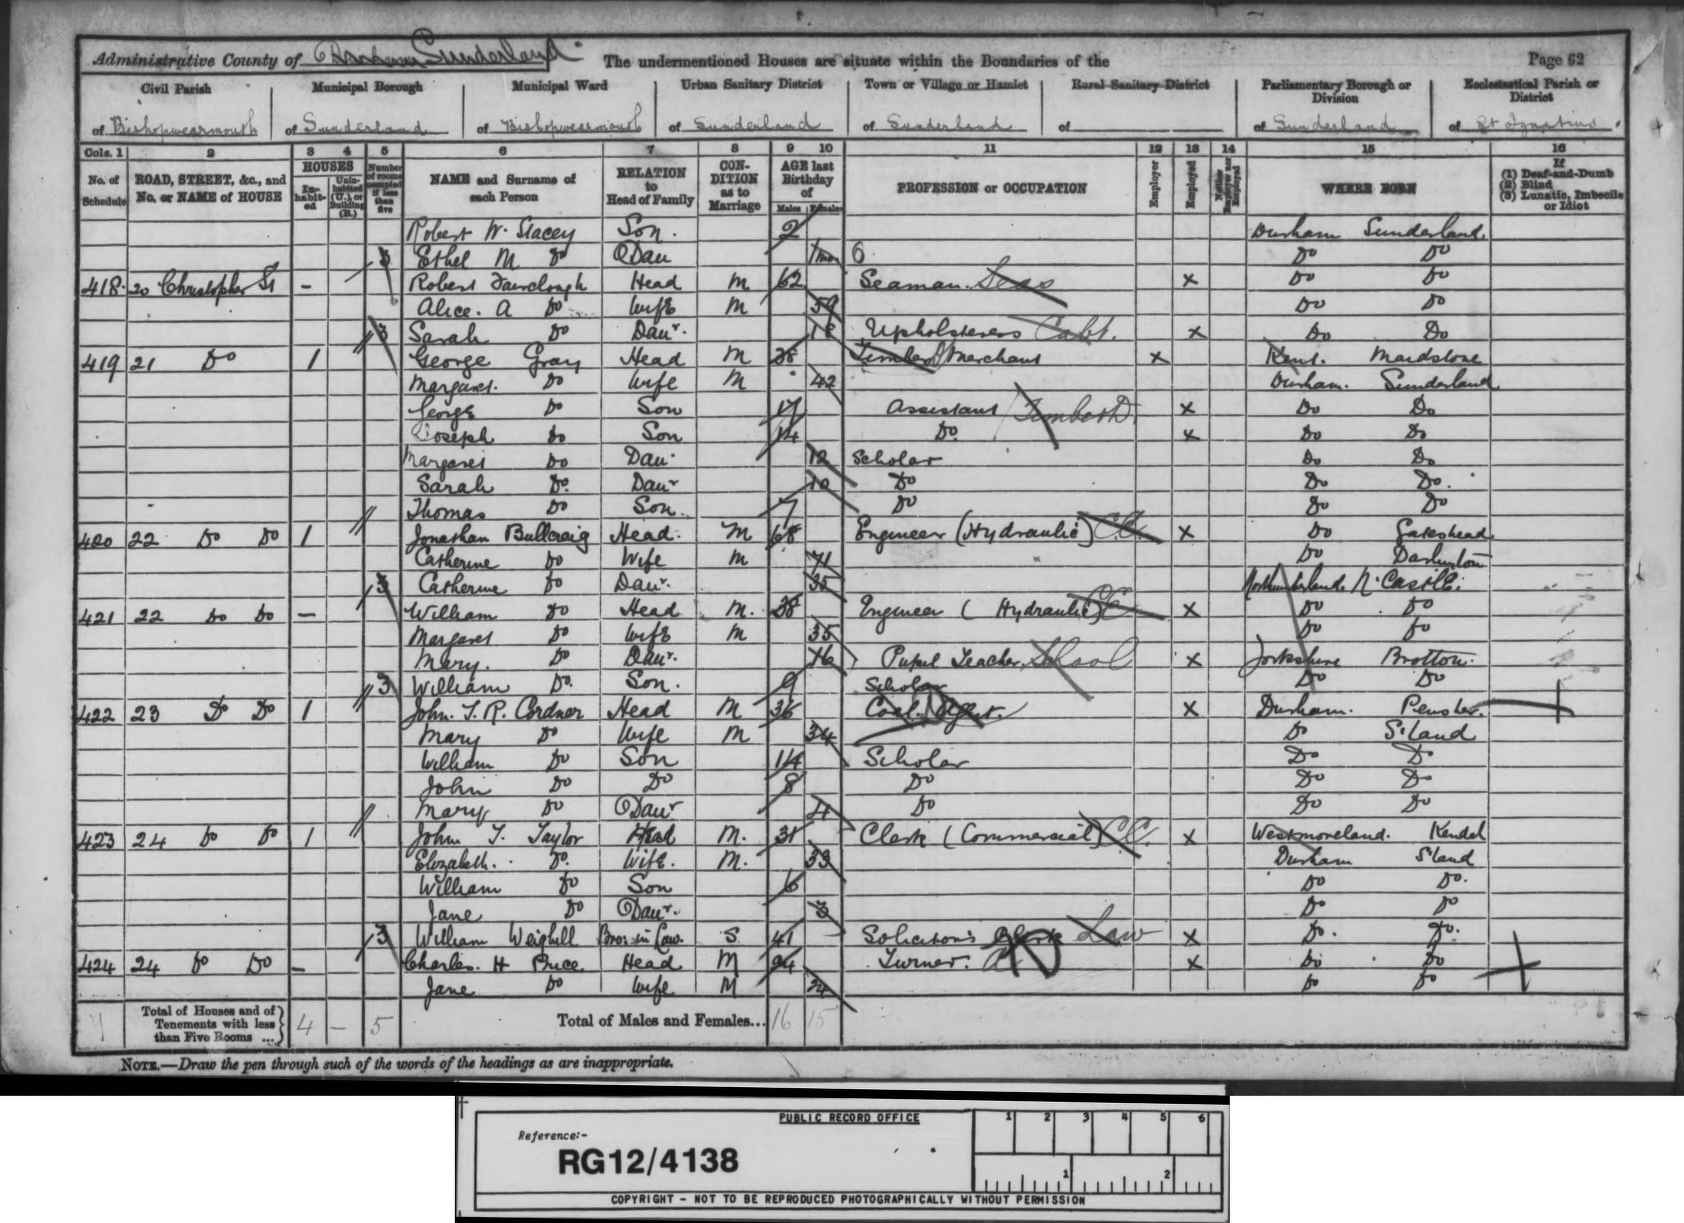 Administrative County of Durham Sunderland The undermentioned Houses are situate within the Boundaries of the Page 62
Civil Parish Municipal Borough Municipal Ward Urban Sanitary District Town or Village or Hamlet Rural Sanitary District Parliamentary Borough or Division Ecclesiastical Parish or District
of Bishopwearmouth of Sunderland of Bishopwearmouth of Sunderland of Sunderland of of Sunderland of St Ignatius
Cols. 1 2 3 4 5 6 7 8 9 10 11 12 13 14 15 16
No. of Schedule ROAD, STREET, &c., and No. or NAME of HOUSE HOUSES Inhabited Uninhabited (U.), or Building (B.) Number of rooms occupied if less than five NAME and Surname of each Person RELATION to Head of Family CONDITION as to Marriage AGE last Birthday of Males Females PROFESSION or OCCUPATION Employer Employed Neither Employer nor Employed WHERE BORN If (1) Deaf-and-Dumb (2) Blind (3) Lunatic, Imbecile or Idiot
Robert W. Stacey Son. 2 Durham Sunderland
3 Ethel M Do Dau 1mo 6 Do Do
418 20 Christopher St - Robert Fairclough Head M 62 Seaman Seas x Do Do
Alice. A Do Wife M 59 Do Do
3 Sarah Do Daur. 18 Upholsteress Cabt. x Do Do
419 21 Do 1 George Gray Head M 38 Timber Merchant x Kent. Maidstone
Margaret. Do Wife M 42 Durham. Sunderland
George Do Son 17 Assistant Timber D x Do Do
Joseph Do Son 14 Do x Do Do
Margaret Do Dau. 12 Scholar Do Do
Sarah Do. Daur 10 Do Do Do.
Thomas Do Son. 7 Do Do Do
420 22 Do Do 1 Jonathan Bullcraig Head. M 68 Engineer (Hydraulic) C.E. x Do Gateshead
Catherine Do Wife M 71 Do Darlington
3 Catherine Do Daur. 35 Northumberland N. Castle.
421 22 Do Do - William Do Head M. 38 Engineer (Hydraulic) C.E. x Do Do
Margaret Do Wife M 35 Do Do
Mary. Do Daur. 16 Pupil Teacher School x Yorkshire Brotton.
3 William Do. Son. 9 Scholar Do Do
422 23 Do Do 1 John. T. R. Cordner Head M 36 Coal Agent. x Durham. Pensher.
Mary Do Wife M 34 Do S'land
William Do Son 14 Scholar Do Do
John Do Do 8 Do Do Do
Mary Do Daur 4 Do Do Do
423 24 Do Do 1 John T. Taylor Head M. 31 Clerk (Commercial) C.C. x Westmoreland. Kendal
Elizabeth. Do. Wife. M. 33 Durham S'land
William Do Son 6 Do Do.
Jane Do Daur. 3 Do Do
3 William Weighill Bror in Law. S 41 Solicitor's Clerk Law x Do. Do.
424 24 Do Do - Charles. H Price. Head M 24 Turner. x Do Do
Jane Do Wife M 24 Do Do
7 Total of Houses and of Tenements with less than Five Rooms ... 4 - 5 Total of Males and Females... 16 15
NOTE.—Draw the pen through such of the words of the headings as are inappropriate.
PUBLIC RECORD OFFICE
1 2 3 4 5 6
Reference:-
RG12/4138
1 2
COPYRIGHT - NOT TO BE REPRODUCED PHOTOGRAPHICALLY WITHOUT PERMISSION